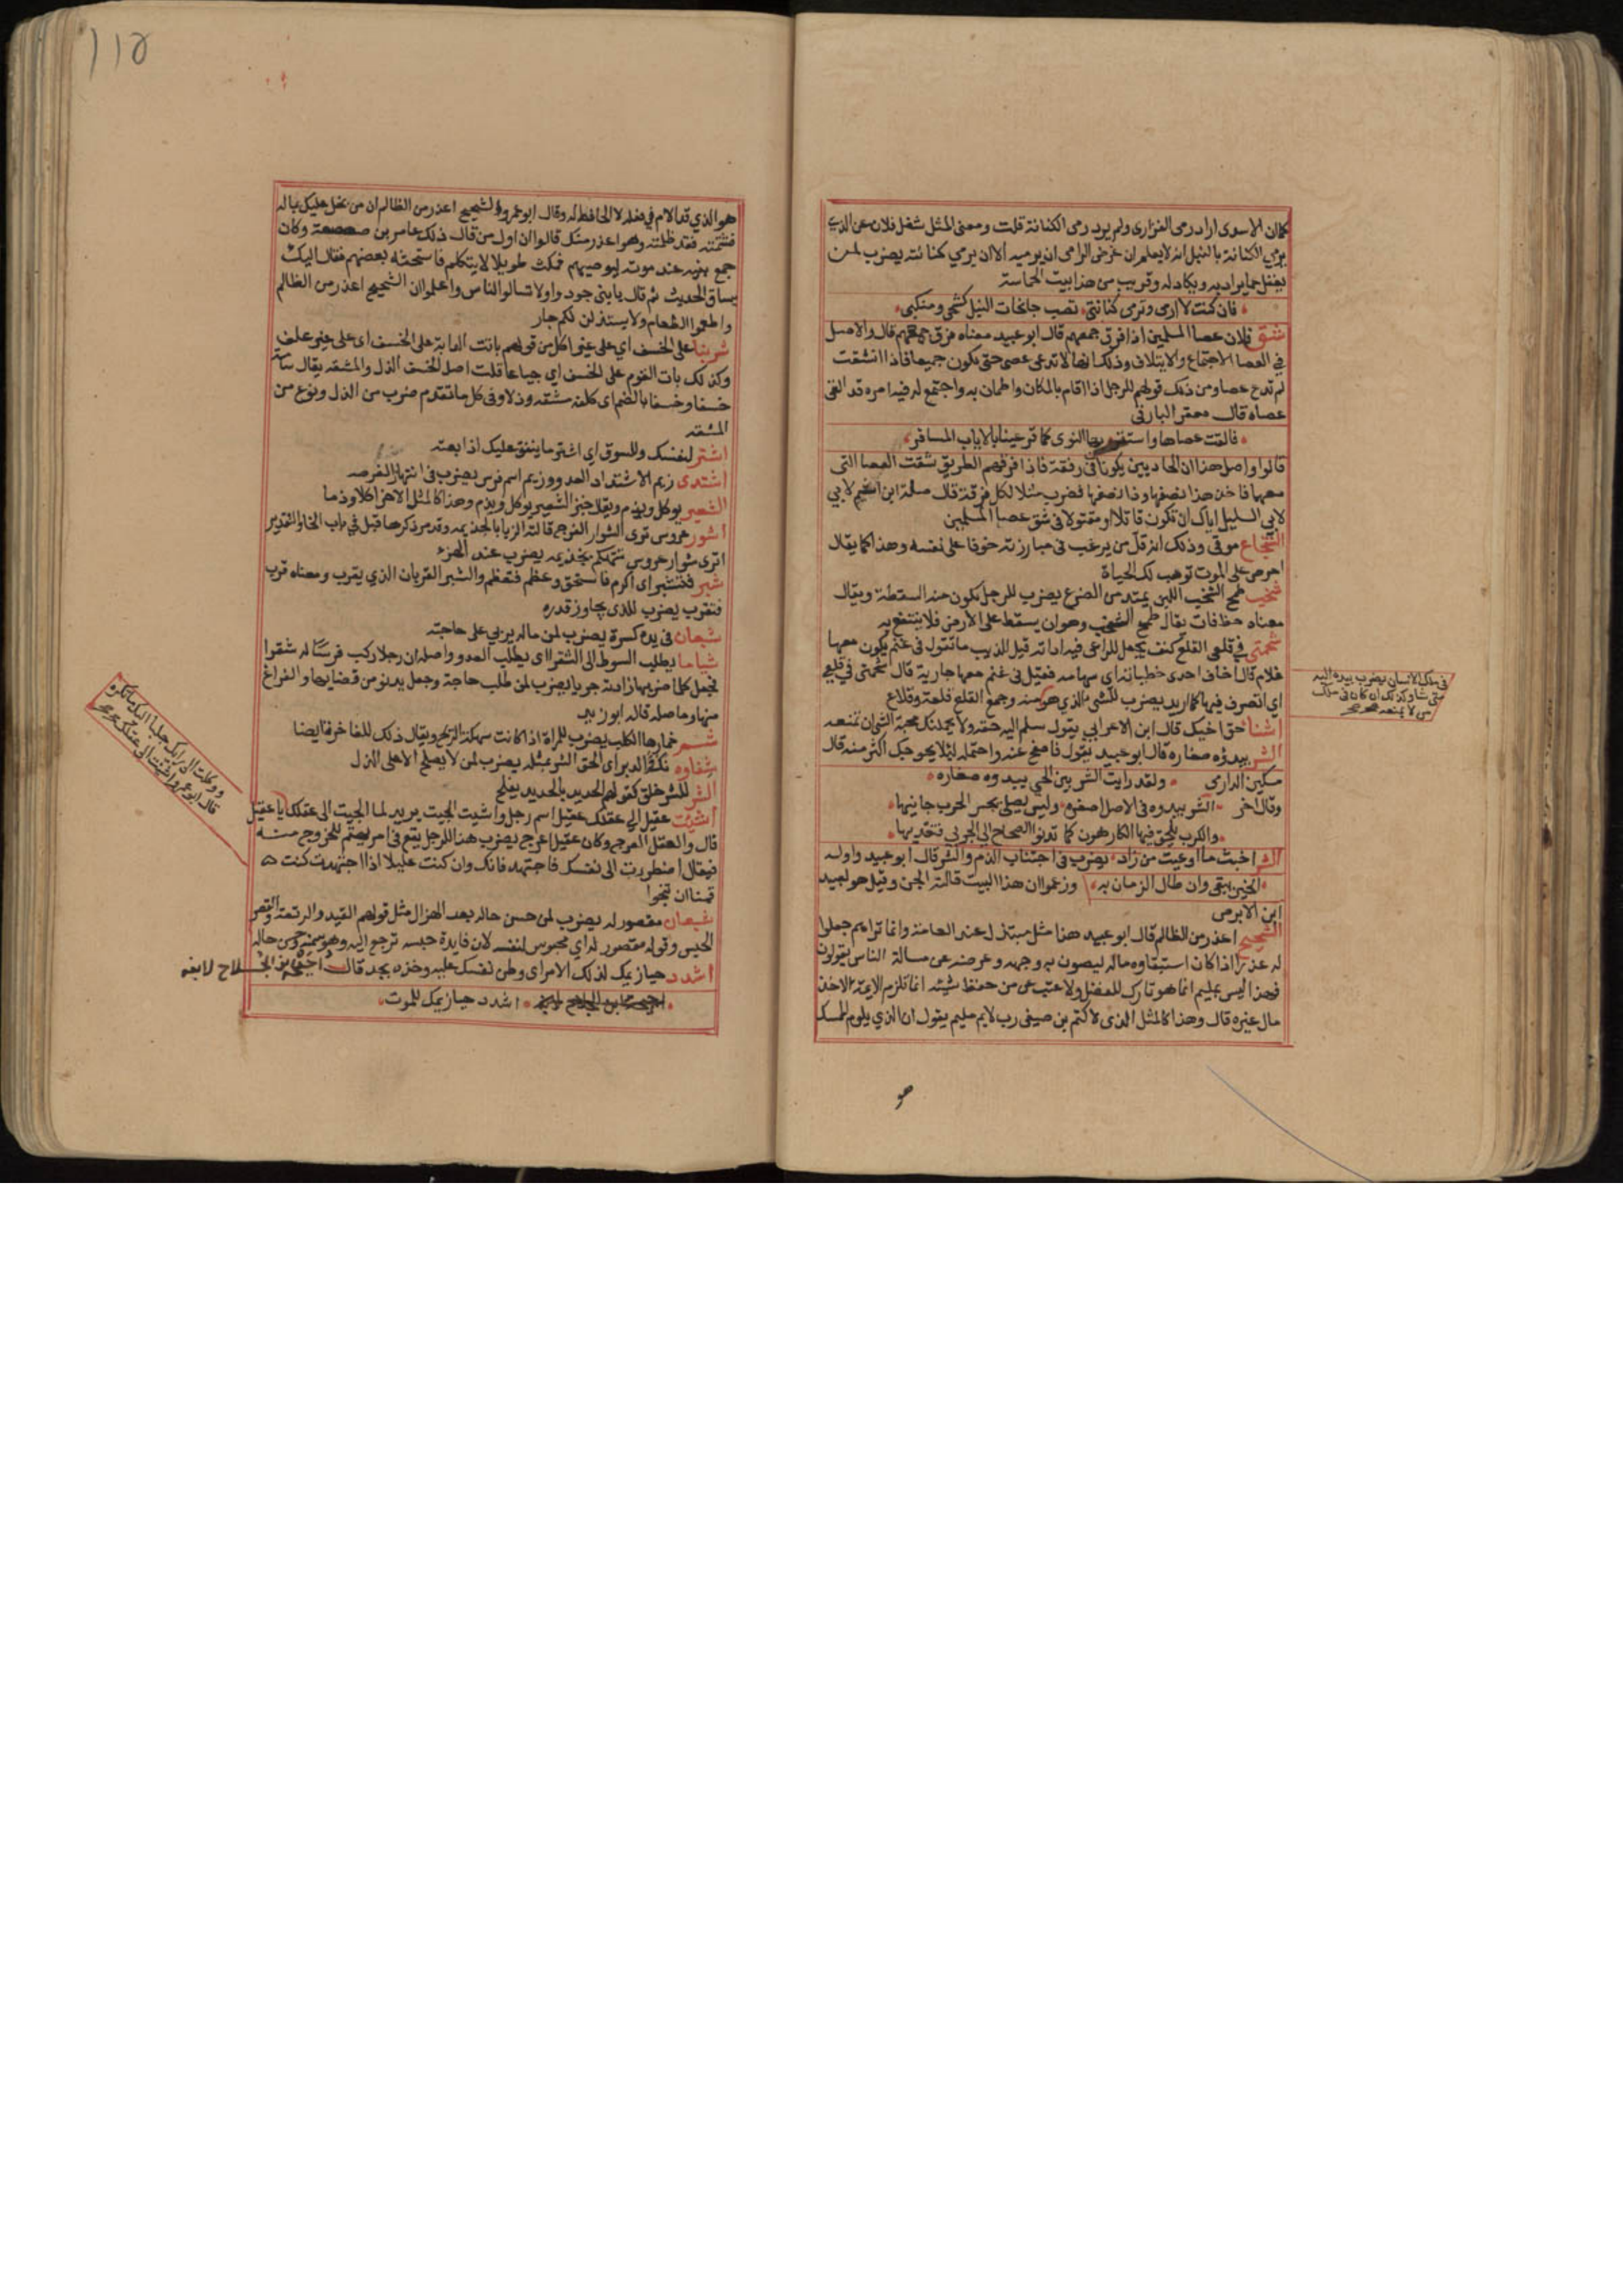 كان الاسدى اراد رمى الفزارى ولم يرد رمى الكنانة قلت ومعنى المثل شغل فلان عن الذى
يرمي الكنانة بالنبل انه لا يعلم ان غرض الرامى ان يرميه الا ان يرمي كنانته يضرب لمن
يغفل عما يراد به ويكاد له وقريب من هذا بيت الحماسة
فان كنت لا ارمى وترمى كنانتي تصب جانحات النبل كشحى ومنكبى
شق فلان عصا المسلمين اذا فرق جمعهم قال ابو عبيد معناه فرق جمعهم قال والاصل
في العصا الاجتماع والايتلاف وذلك انها لا تدعى عصى حتى تكون جميعا فاذا انشقت
لم تدع عصا ومن ذلك قولهم للرجل اذا اقام بالمكان واطمان به واجتمع له فيه امره قد القى
عصاه قال معقر البارقى
فالقت عصاها واستقر بها النوى كما قر عينا بالاياب المسافر
قالوا واصل هذا ان الحاديين يكونا فى رفقة فاذا فرقهم الطريق شقت العصا التى
معهما فاخذ هذا نصفها وذا نصفها فضرب مثلا لكل فرقة قال صلة ابن اشيم لابي
لابي السليل اياك ان تكون قاتلا او مقتولا فى شق عصا المسلمين
الشجاع موقى وذلك انه قل من يرغب فى مبارزته خوفا على نفسه وهذا كما يقال
احرص على الموت توهب لك الحياة
شخب طمح الشخب اللبن يمتد من الضرع يضرب للرجل يكون منه السقطة ويقال
معناه حظ فات يقال طمح الشخب وهو ان يسقط على الارض فلا ينتفع به
شحمتى في قلعى القلع كنف يجعل للراعى فيه اداته قيل للذيب ما تقول فى غنم يكون معها
غلام قال اخاف احدى خطياته اى سهامه فقيل فى غنم معها جارية قال شحمتى في قلعي
اي اتصرف فيها كما اريد يضرب للشى الذي هو منه وجمع القلع قلعة وقلاع
فى ملك الانسان يضرب بيده اليه
متى شاء وكذلك ان كان فى ملك
من لا يمنعه صح
اشنا حق اخيك قال ابن الاعرابي يقول سلم اليه حقه ولا يحملنك محبة الشى ان تمنعه
الشر يبدؤه صغاره قال ابو عبيد يقول فاصفح عنه واحتمله ليلا يخرجك اكثر منه قال
مسكين الدارى ولقد رايت الشر بين الحي يبدوه صغاره
وقال اخر الشر يبدوه فى الاصل اصغره وليس يصلى بحر الحرب جانيها
والحرب يلحق فيها الكارهون كما تدنو الصحاح الى الجربى فتعديها
الشر اخبث ما اوعيت من زاد يضرب فى اجتناب الذم والشر قال ابو عبيد واوله
الخير يبقى وان طال الزمان به وزعموا ان هذا البيت قالته الجن وقيل هو لعبيد
ابن الابرص
الشحيح اعذر من الظالم قال ابو عبيد هذا مثل مبتذل عند العامة وانما تراهم جعلوا
له عذرا اذا كان استبقاوه ماله ليصون به وجهه وعرضه عن مسالة الناس يقولون
فهذا ليس بمليم انما هو تارك للفضل ولا عتب على من حفظ شيئه انما تلزم الايمة الاخذ
مال غيره قال وهذا كالمثل الذى لاكثم بن صيفى رب لايم مليم يقول ان الذي يلوم الممسك
هو
هو الذي قد الام في فعله لا الحافظ له وقال ابو عمرو الشحيح اعذر من الظالم ان من بخل عليك بماله
فشتمته فقد ظلمته وهو اعذر منك قالوا ان اول من قال ذلك عامر بن صعصعة وكان
جمع بنيه عند موته ليوصيهم فمكث طويلا لا يتكلم فاستحثه بعضهم فقال اليك
يساق الحديث ثم قال يا بنى جودوا ولا تسالوا الناس واعلموا ان الشحيح اعذر من الظالم
واطعموا الطعام ولا يستذلن لكم جار
شربنا على الخسف اي على غير اكل من قولهم باتت الدابة على الخسف اى على غير علف
وكذلك بات القوم على الخسف اي جياعا قلت اصل الخسف الذل والمشقه يقال سامه
خسفا وخسفا بالضم اى كلفه مشقه وذلا وفى كل ما تقدم ضرب من الذل ونوع من
المشقه
اشتر لنفسك وللسوق اي اشتر ما ينفق عليك اذا بعته
اشتدى زيم الاشتداد العدو وزيم اسم فرس يضرب فى انتهاز الفرصه
الشعير يوكل ويذم ويقال خبز الشعير يوكل ويذم وهذا كالمثل الاخر اكلا وذما
اشور عروس ترى الشوار الفرج قالته الزبا بالجذيمه وقد مر ذكرها قبل في باب الخا والتقدير
اترى شوار عروس تتهكم بجذيمه يضرب عند الهزء
شبر فتشبر اى اكرم فاستحق وعظم فتعظم والشبر القربان الذي يقرب ومعناه قرب
فتقرب يضرب للذى يجاوز قدره
شبعان فى يده كسرة يضرب لمن ماله يربي على حاجته
يطلب السوط الى الشقرا اى يطلب العدو واصله ان رجلا ركب فرسا له شقرا
فجعل كلما ضربها زادته جريا يضرب لمن طلب حاجة وجعل يدنو من قضايها والفراغ
منها وما صله قاله ابو زيد
شمر خمارها الكلب يضرب للمراة اذا كانت سهكة الريح ويقال ذلك للفاخر فا ايضا
الشر للشر خلق كقولهم الحديد بالحديد يفلح
اشيت عقيل الى عقلك عقيل اسم رجل واشيت الجيت يريد لما الجيت الى عقلك يا عقيل
قال والعقل العرج وكان عقيل اعرج يضرب هذا للرجل يقع فى امر يهتم للخروج منه
فيقال اضطررت الى نفسك فاجتهد فانك وان كنت عليلا اذا اجتهدت كنت
قمنا ان تنجوا
شبعان مقصور له يضرب لمن حسن حاله بعد الهزال مثل قولهم القيد والرتعة والقصر
الحبس وقوله مقصور له اي محبوس لنفسه لان فايدة حبسه ترجع اليه وهو سمنه وحسن حاله
اشدد حيازيمك لذلك الامر اى وطن نفسك عليه وخذه بجد قال احيحة بن الجلاح لابنه
اشدد حيازيمك للموت